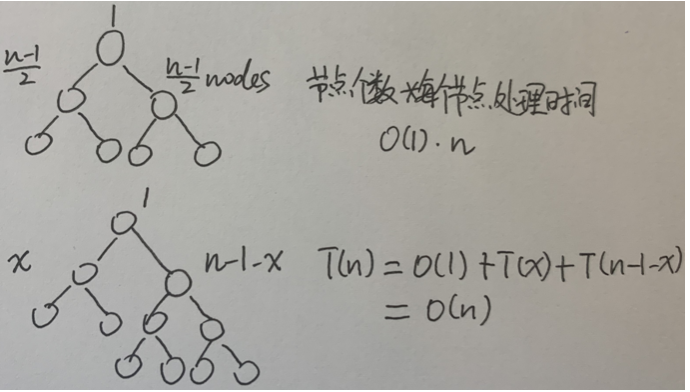 1
n-1/2
n-1/2 nodes
节点个数×每个节点处理时间
O(1)·n
1
x
n-1-x
T(n) = O(1) + T(x) + T(n-1-x)
= O(n)